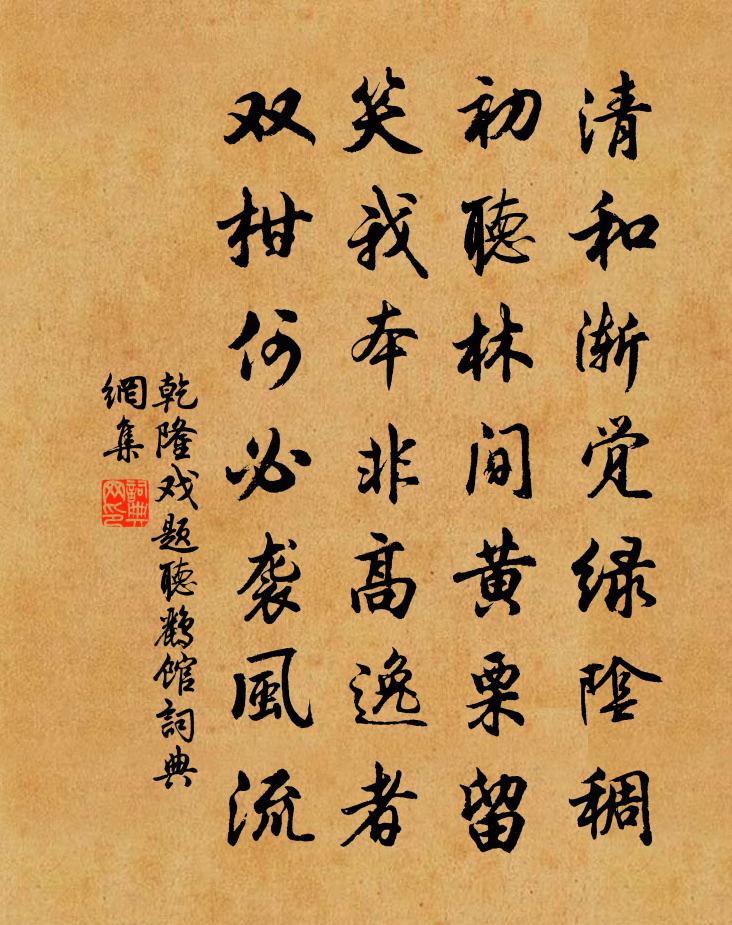 清和渐觉绿陰稠
初聽林间黄栗留
笑我本非高逸者
双柑何必袭風流
乾隆戏题聽鹂馆詞典
網集
詞典
网印